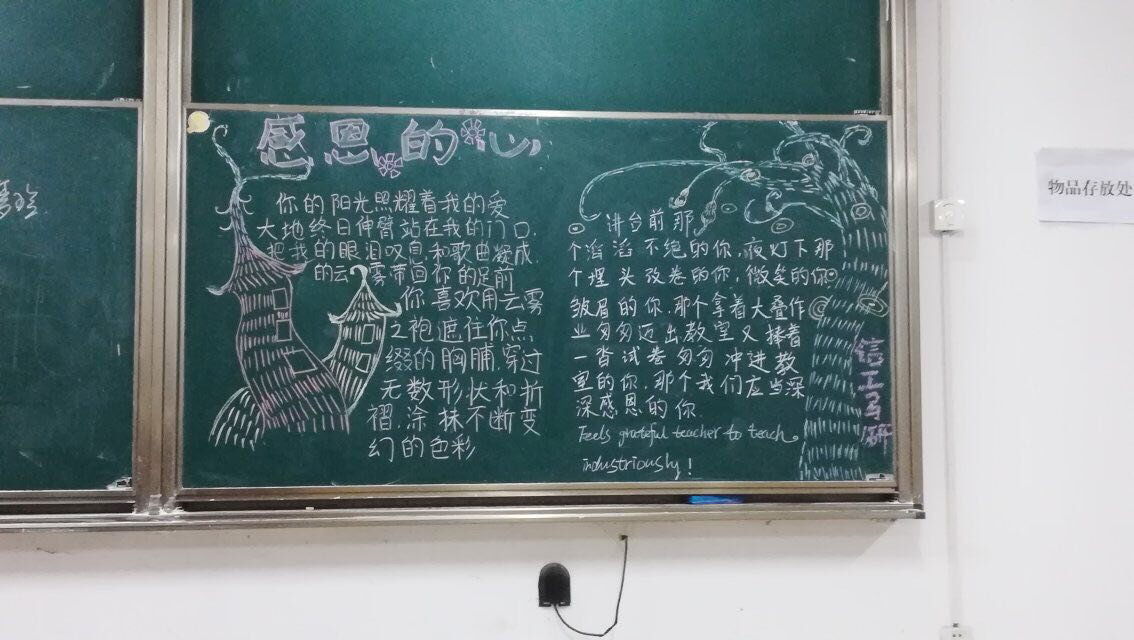 感恩的心
你的阳光照耀着我的爱
大地终日伸臂站在我的门口,
把我的眼泪叹息和歌曲凝成,
的云雾带回你的足前
你喜欢用云雾
之袍遮住你点
缀的胸脯,穿过
无数形状和折
褶,涂抹不断变
幻的色彩
讲台前那
个滔滔不绝的你,夜灯下那
个埋头改卷的你,微笑的你
皱眉的你,那个拿着大叠作
业匆匆迈出教室又捧着
一沓试卷匆匆冲进教
室的你,那个我们应当深
深感恩的你.
Feels grateful teacher to teach。
industriously!
信工
物品存放处